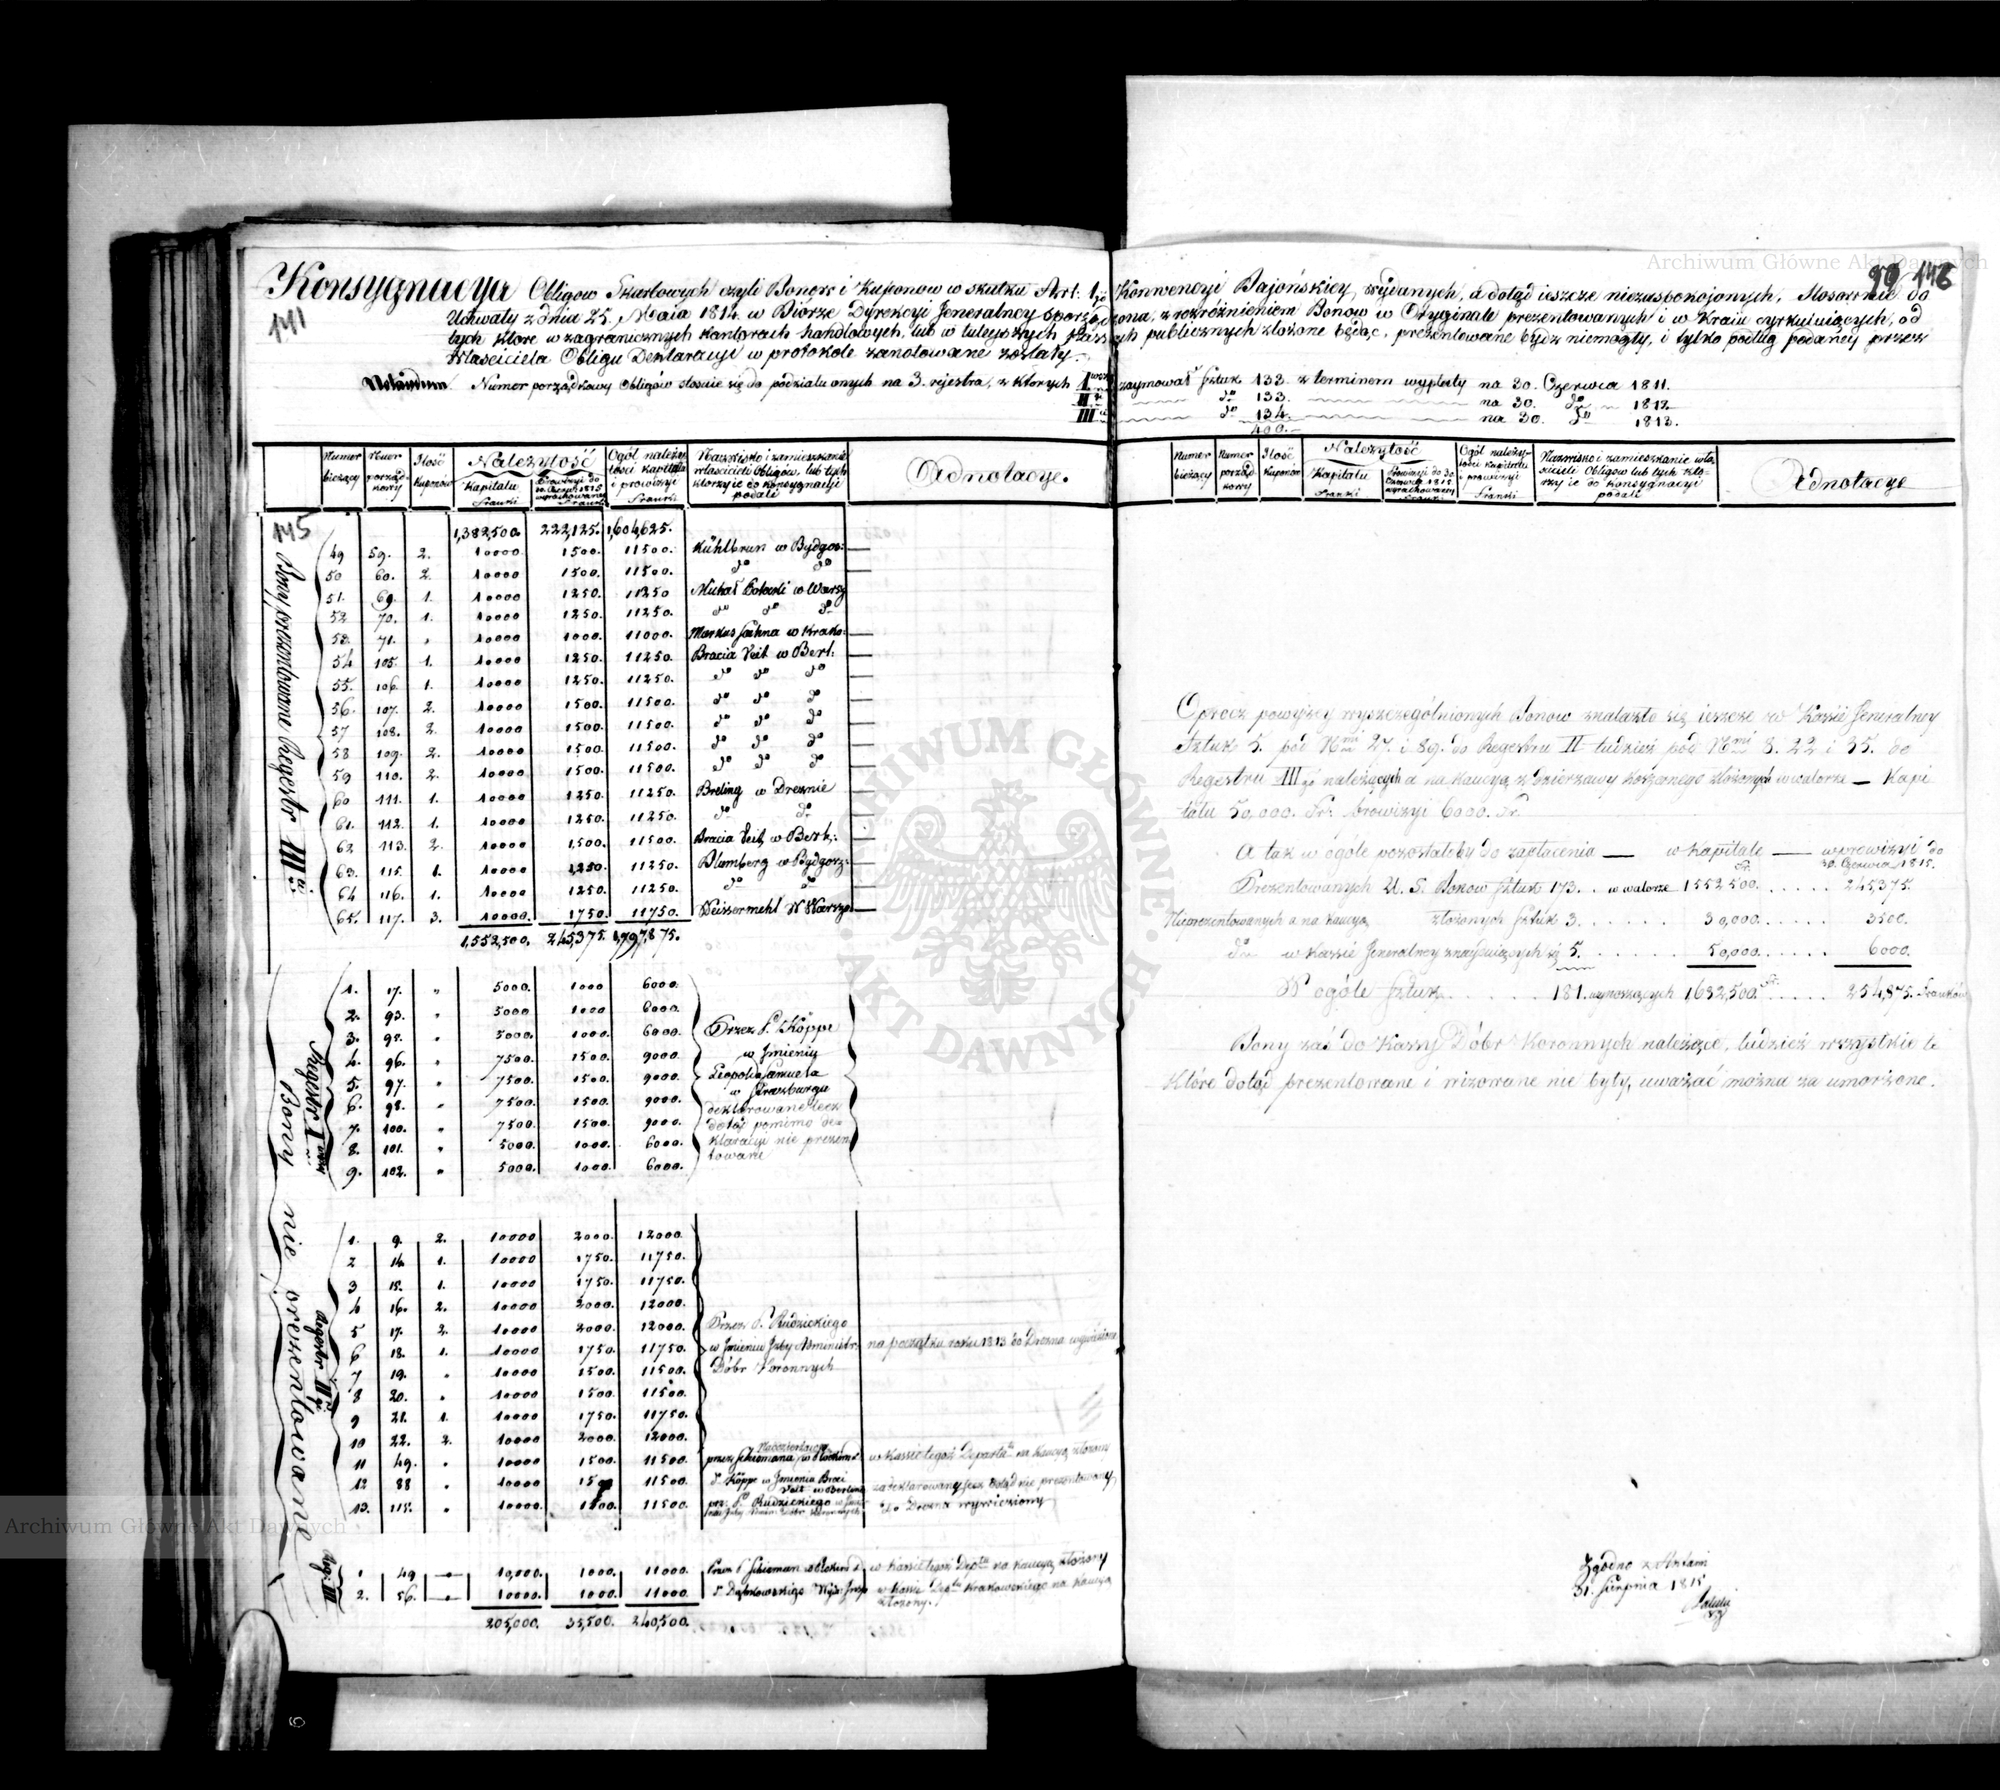 Archiwum Główne Akt Dawnych
99 146
Konsygnacya Obligow Skarbowych czyli Bonow i Kuponow w skutku Art. 1go Konwencyi Bajońskiey, wydanych, a dotąd ieszcze niezaspokojonych, Stosownie do
141
Uchwały z dnia 25. Maia 1814. w Biórze Dyrekcyi Jeneralney sporządzona, z rozróżnieniem Bonow w Oryginale prezentowanych i w Kraiu cyrkuluiących, od
tych które w zagranicznych kantorach handlowych, lub w tuteyszych kassach publicznych złożone będąc, prezentowane bydź niemogły, i tylko podług podaney przez
Właściciela Obligu Deklaracyi w protokole zanotowane zostały.
Notandum. Numer porządkowy Obligów stosuie się do podziału onych na 3. rejestra, z których Iwszy zaymował sztuk 133. z terminem wypłaty na 30. Czerwca 1811.
IIgi do 133. na 30. do 1812.
IIIci do 134. na 30. do 1813.
400.
Numer bieżący
Numer porządkowy
Ilość kuponów
Należytość
Kapitału Franki
Prowizyi do 30. Czerwca 1815 wyrachowaney Franki
Ogół należytości kapitału i prowizyi Franki
Nazwisko i zamieszkanie właścicieli Obligów, lub tych którzy ie do konsygnacyi podali
Adnotacye.
Numer bieżący
Numer porządkowy
Ilość kuponow
Należytość
Kapitału Franki
Prowizyi do 30. Czerwca 1815. wyrachowaney
Ogół należytości kapitału i prowizyi Franki
Nazwisko i zamieszkanie właścicieli Obligów lub tych którzy ie do konsygnacyi podali
Adnotacye
145
Bony prezentowane Regestr IIIci
1,382,500. 222,125. 1,604,625.
49 59. 2. 10000. 1500. 11500. Kühlbrun w Bydgos:
50 60. 2. 10000 1500. 11500. do do
51. 69. 1. 10000 1250. 11250 Michał w Warsz
52 70. 1. 10000 1250. 11250. do do do
53. 71. " 10000 1000. 11000. Markus w Krako:
54 105. 1. 10000 1250. 11250. Bracia Veit w Berl:
55. 106. 1. 10000 1250. 11250. do do do
56. 107. 2. 10000 1500. 11500. do do do
57 108. 2. 10000 1500. 11500. do do do
58 109. 2. 10000 1500. 11500. do do do
59 110. 2. 10000 1500. 11500. do do do
60 111. 1. 10000 1250. 11250. Breling w Dreznie
61. 112. 1. 10000 1250. 11250. do do
62 113. 2. 10000 1,500. 11500. Bracia Veit w Berl:
63. 115. 1. 10000 1,250. 11250. Blumberg w Bydgosz:
64 116. 1. 10000 1250. 11250. do do
65. 117. 3. 10000. 1750. 11750. Weissermehl W Warsza
1,552,500. 245,375. 1,797,875.
Bony nie prezentowane
Regestr Iwszy
1. 17. " 5000. 1000 6000.
2. 93. " 5000 1000 6000.
3. 95. " 5000. 1000. 6000. Przez P. Köppe
4. 96. " 7500. 1500. 9000. w Jmieniu
5. 97. " 7500. 1500. 9000. Leopolda Samuela w Preszburgu
6. 98. " 7500. 1500. 9000. deklarowane lecz
7. 100. " 7500 1500. 9000. dotąd pomimo de-
8. 101. " 5000. 1000. 6000. klaracyi nie prezen
9. 102. " 5000. 1000. 6000. towane
Regestr IIgi
1. 9. 2. 10000. 2000. 12000.
2 14 1. 10000. 1750. 11750.
3 15. 1. 10000 1750. 11750.
4 16. 2. 10000 2000. 12000.
5 17. 2. 10000. 2000. 12000. Przez P. Rudzickiego
6 18. 1. 10000. 1750. 11750. w Jmieniu Izby Administr: na początku roku 1813 do Drezna wywiezione
7 19. " 10000 1500. 11500. Dóbr Koronnych
8 20. " 10000 1500. 11500.
9 21. 1. 10000. 1750. 11750.
10 22. 2. 10000 2000. 12000.
11 49. " 10000. 1500. 11500. przez Schumana w kassie tegoż Departtu na kaucyą złożony
12 88 " 10000. 1500 11500. P. Köppe w Jmieniu Braci Veit w Berlinie zadeklarowany lecz dotąd nie prezentowany
13. 115. " 10000. 1500. 11500. prz. P. Rudzickiego do Drezna wywieziony
Reg: III
1 49 — 10,000. 1000. 11000. Przez P. Schuman w kassie tegoż Deptu na kaucyą złożony
2. 56. — 10000. 1000. 11000. P. Dąbrowskiego w kassie Deptu Krakowskiego na kaucyą złożony.
205,000. 35,500. 240,500.
Oprocz powyżey wyszczególnionych Bonow znalazło się ieszcze w Kassie Jeneralney
Sztuk 5. pod Nmi 27. i 89. do Regestru II tudzież pod Nmi 8. 22 i 35. do
Regestru IIIgo należących a na kaucyą z Dzierzawy złożonych w walorze — Kapi
tału 50,000. Fr: Prowizyi 6000. Fr.
A tak w ogóle pozostałoby do zapłacenia — w kapitale — w prowizyi do 30. Czerwca 1815.
Prezentowanych U. S. Bonow sztuk 173. . w walorze 1552500. . . . . . 245,375.
Nieprezentowanych a na kaucyą złożonych sztuk 3. . . . . . 30,000. . . . . . 3500.
do w kassie Jeneralney znayduiących się 5. . . . . . 50,000. . . . . . 6000.
W ogóle sztuk . . . . . 181. wynoszących 1,632,500. Fr. . . . . 254,875. Franków
Bony zaś do Kassy Dóbr Koronnych należące, tudzież wszystkie te
które dotąd prezentowane i wizowane nie były, uważać można za umorzone.
Zgodno z Aktami
31. Sierpnia 1815
ARCHIWUM GŁÓWNE AKT DAWNYCH
Archiwum Główne Akt Dawnych